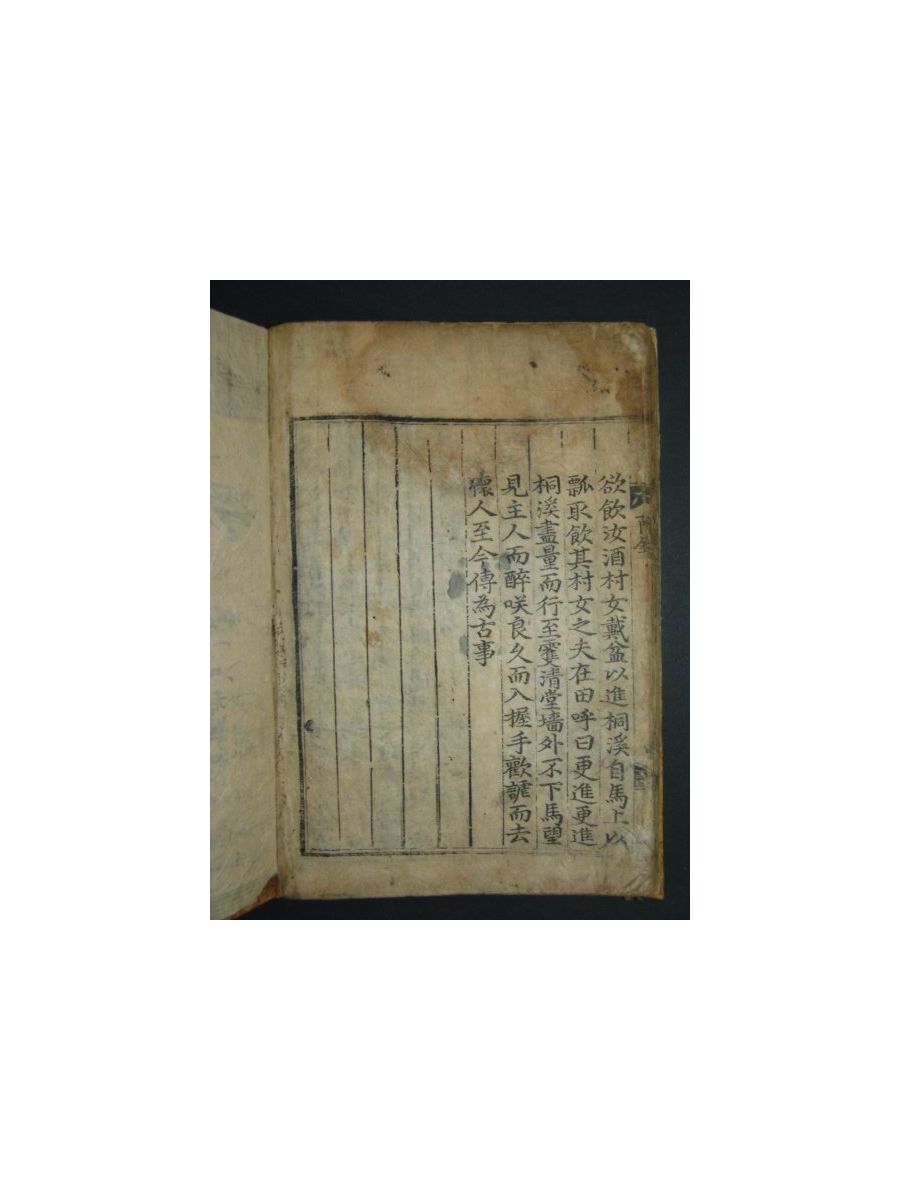 欲飮汝酒村女戴盆以進桐溪自馬上以
瓢取飮其村女之夫在田呼曰更進更進
桐溪盡量而行至霽清堂墻外不下馬望
見主人而醉咲良久而入握手歡謔而去
鄕人至今傳為古事